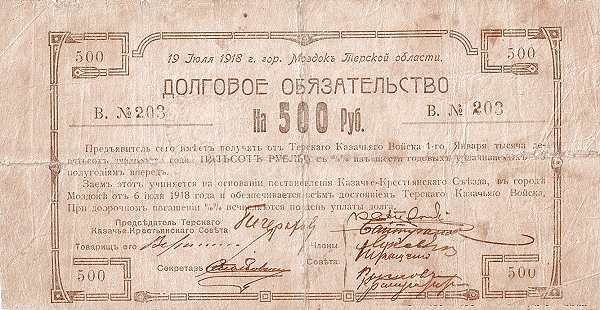 500
500
19 Июля 1918 г. гор. Моздок Терской области.
ДОЛГОВОЕ ОБЯЗАТЕЛЬСТВО
В. № 203
В. № 203
На 500 Руб.
Предъявитель сего имѣет получить от Терскаго Казачьяго Войска 1-го Января тысяча де-
вятьсот года ПЯТЬСОТ РУБЛЕЙ с
полугодиям вперед.
Заем этот учиняется на основании постановления Казачье-Крестьянскаго Съезда, в городѣ
Моздокѣ от 6 июля 1918 года и обезпечивается всѣм достоянием Терскаго Казачьяго Войска.
При досрочном погашении %% исчисляются по день уплаты долга.
Председатель Терскаго
Казаче.-Крестьянскаго Совѣта
Товарищ его
Члены
Совѣта:
Секретарь
500
500